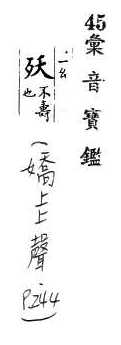 45彙音寶鑑
ㄧㄠ
殀 不壽也
(嬌上上聲
P244)